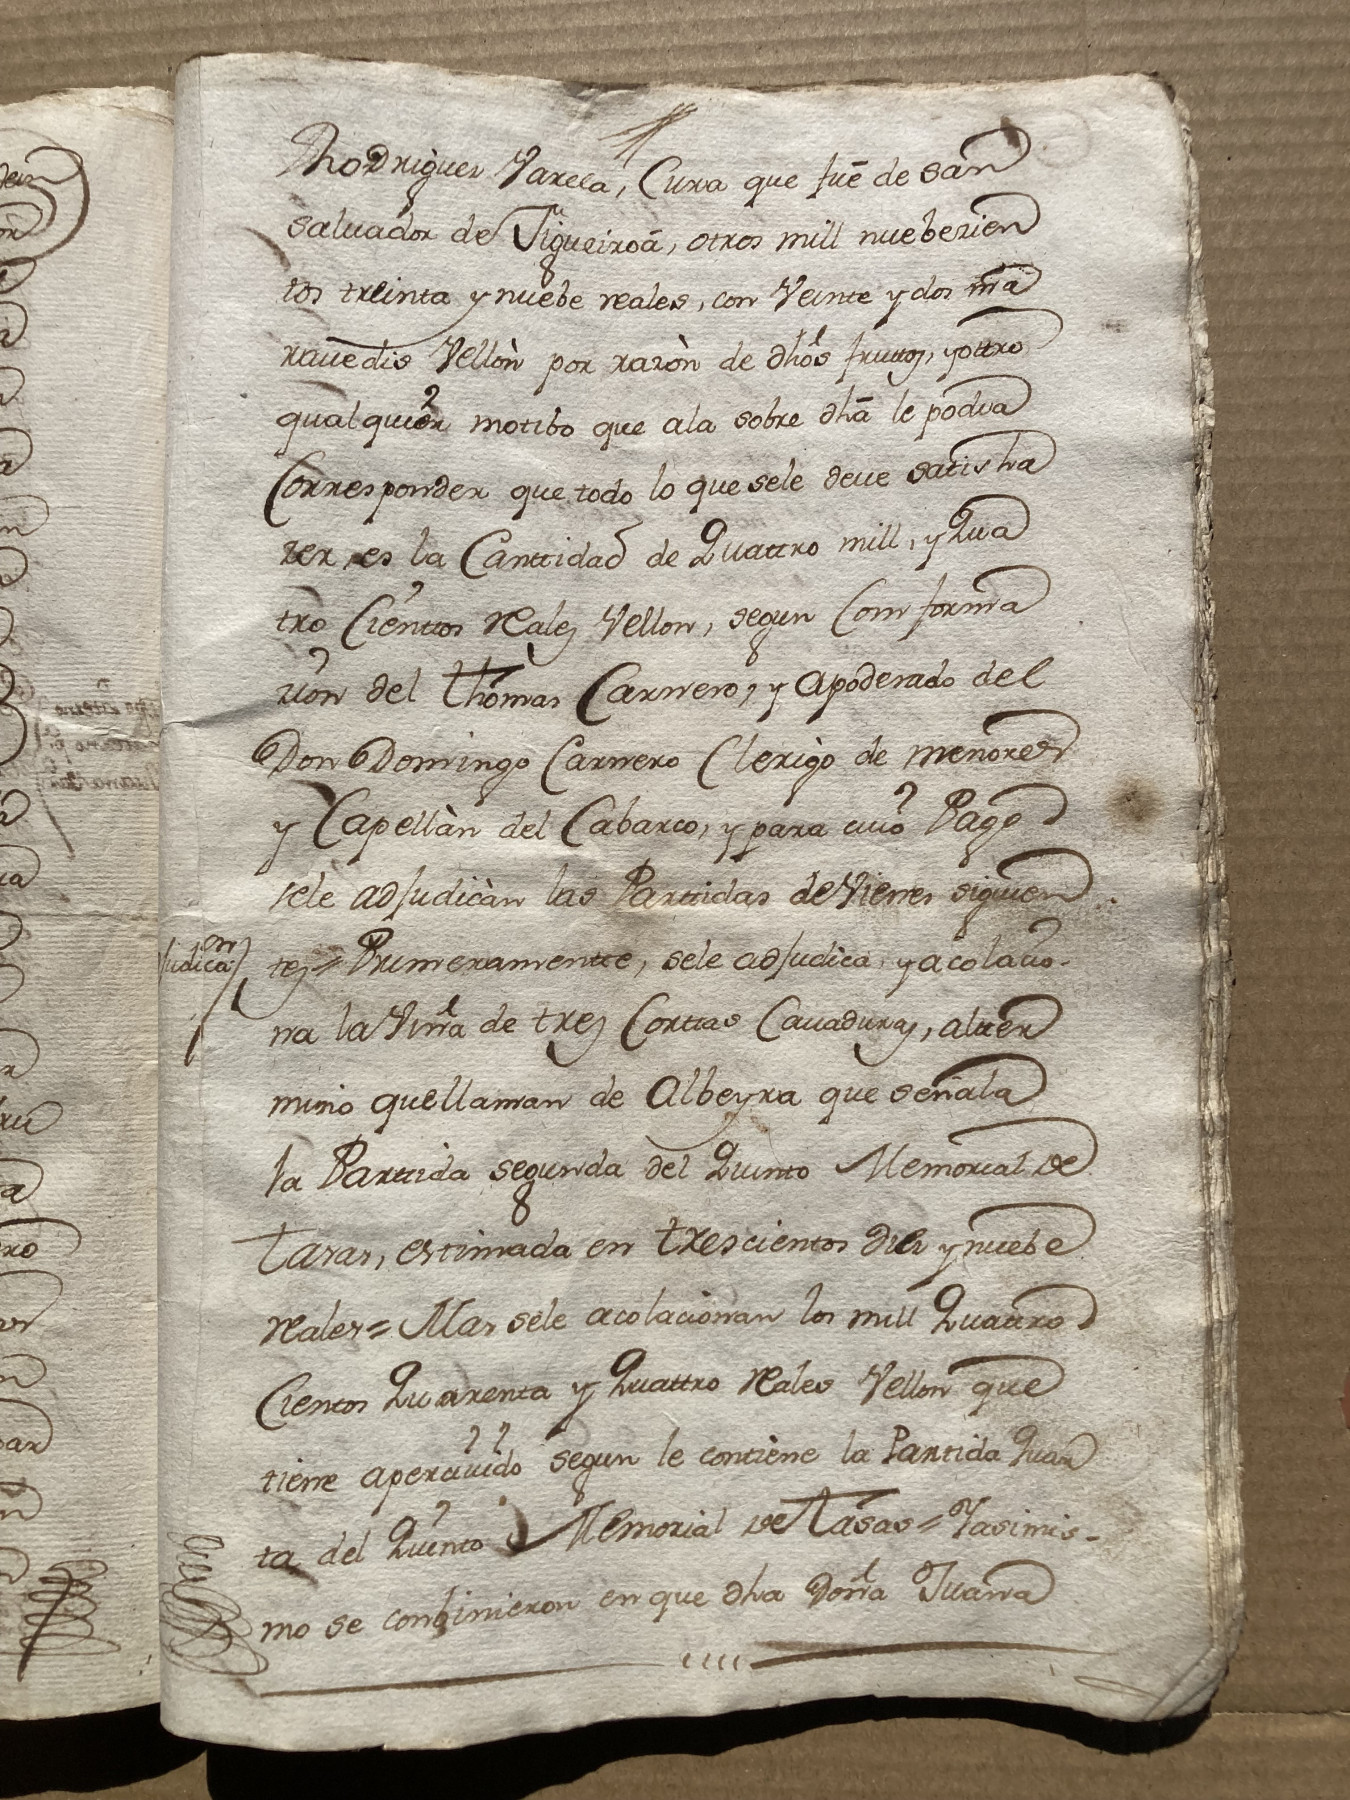 Rodriguez Varela, Cura que fué de san
saluador de Figueiroá, otros mill nuebezien
tos treinta y nuebe reales, con Veinte y dos ma
rauedis Vellòn por razòn de dhos fruttos, y ottro
qualquier motibo que ala sobre dhã le podia
Corresponder que todo lo que sele deve satisha
zer, es la Canttidad de Quattro mill, y Qua
tro Cienttos Reales Vellon, segun Comforma
cion del Thomas Carnero, y Apoderado del
Don Domingo Carnero Clerigo de menores
y Capellàn del Cabarco, y para cuio Pago
sele adJudicàn las Parttidas de Vienes siguien
tes = Primeramentte, sele adJudica, y acolacio-
na la Viña de tres Corttas Cauaduras, alter
mino que llaman de Albeyra que señala
la Parttida segunda del Quinto Memorial de
Tasas, estimada en trescientos diez y nuebe
reales = Mas sele acolacionan los mill Quattro
Cientos Quarenta y Quattro Reales Vellon que
tiene aperciuido segun le contiene la Partida Quar
ta del Quinto Memorial de Tasas = Yasimis-
mo se conbinieron en que dha Doña Juana
Judicaon